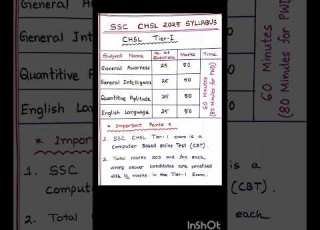 SSC CHSL 2025 SYLLABUS
CHSL Tier-I
Subject Name No. of Questions Marks Time
General Awareness 25 50
General Intelligence 25 50
Quantitative Aptitude 25 50
English Language 25 50
60 Minutes
(80 Minutes for PWD)
* Important Points *
1. SSC CHSL Tier-I exam is a
Computer Based Online Test (CBT)
2. Total marks 200 and for each
wrong answer candidates are penalised
with ½ marks in the Tier-I Exam.
General A
General Int
Quantitative A
English Lan
60 Minutes
(80 Minutes for PWD)
* Impor
1. SSC is a
comput (CBT).
2. Total each
InShOt